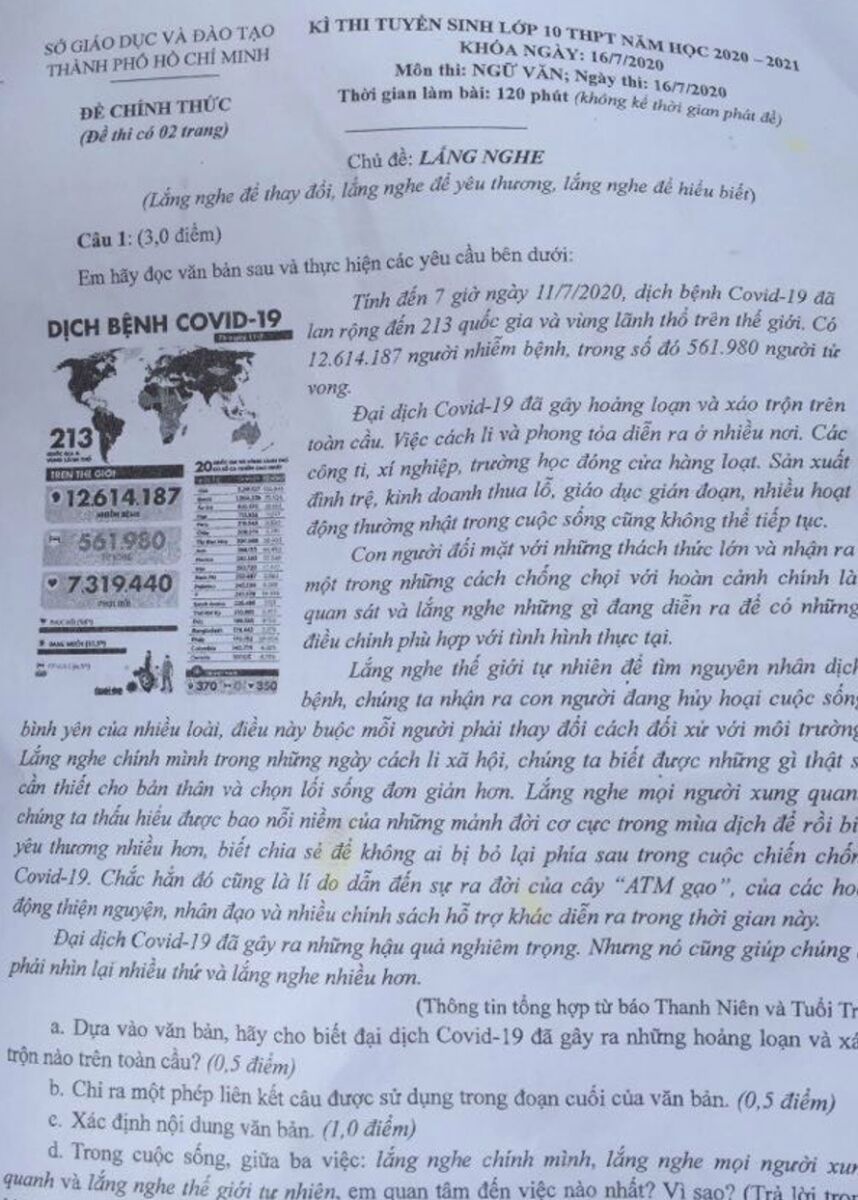 SỞ GIÁO DỤC VÀ ĐÀO TẠO
THÀNH PHỐ HỒ CHÍ MINH
ĐỀ CHÍNH THỨC
(Đề thi có 02 trang)
KÌ THI TUYỂN SINH LỚP 10 THPT NĂM HỌC 2020 – 2021
KHÓA NGÀY: 16/7/2020
Môn thi: NGỮ VĂN; Ngày thi: 16/7/2020
Thời gian làm bài: 120 phút (không kể thời gian phát đề)
Chủ đề: LẮNG NGHE
(Lắng nghe để thay đổi, lắng nghe để yêu thương, lắng nghe để hiểu biết)
Câu 1: (3,0 điểm)
Em hãy đọc văn bản sau và thực hiện các yêu cầu bên dưới:
DỊCH BỆNH COVID-19
213
QUỐC GIA &
VÙNG LÃNH THỔ
TRÊN THẾ GIỚI
12.614.187
NHIỄM BỆNH
561.980
TỬ VONG
7.319.440
PHỤC HỒI
20
370
0
350
Tính đến 7 giờ ngày 11/7/2020, dịch bệnh Covid-19 đã
lan rộng đến 213 quốc gia và vùng lãnh thổ trên thế giới. Có
12.614.187 người nhiễm bệnh, trong số đó 561.980 người tử
vong.
Đại dịch Covid-19 đã gây hoảng loạn và xáo trộn trên
toàn cầu. Việc cách li và phong tỏa diễn ra ở nhiều nơi. Các
công ti, xí nghiệp, trường học đóng cửa hàng loạt. Sản xuất
đình trệ, kinh doanh thua lỗ, giáo dục gián đoạn, nhiều hoạt
động thường nhật trong cuộc sống cũng không thể tiếp tục.
Con người đối mặt với những thách thức lớn và nhận ra
một trong những cách chống chọi với hoàn cảnh chính là
quan sát và lắng nghe những gì đang diễn ra để có những
điều chỉnh phù hợp với tình hình thực tại.
Lắng nghe thế giới tự nhiên để tìm nguyên nhân dịch
bệnh, chúng ta nhận ra con người đang hủy hoại cuộc sống
bình yên của nhiều loài, điều này buộc mỗi người phải thay đổi cách đối xử với môi trường
Lắng nghe chính mình trong những ngày cách li xã hội, chúng ta biết được những gì thật s
cần thiết cho bản thân và chọn lối sống đơn giản hơn. Lắng nghe mọi người xung quan
chúng ta thấu hiểu được bao nỗi niềm của những mảnh đời cơ cực trong mùa dịch để rồi bi
yêu thương nhiều hơn, biết chia sẻ để không ai bị bỏ lại phía sau trong cuộc chiến chốn
Covid-19. Chắc hẳn đó cũng là lí do dẫn đến sự ra đời của cây “ATM gạo”, của các hoạ
động thiện nguyện, nhân đạo và nhiều chính sách hỗ trợ khác diễn ra trong thời gian này.
Đại dịch Covid-19 đã gây ra những hậu quả nghiêm trọng. Nhưng nó cũng giúp chúng
phải nhìn lại nhiều thứ và lắng nghe nhiều hơn.
(Thông tin tổng hợp từ báo Thanh Niên và Tuổi Tr
a. Dựa vào văn bản, hãy cho biết đại dịch Covid-19 đã gây ra những hoảng loạn và xá
trộn nào trên toàn cầu? (0,5 điểm)
b. Chỉ ra một phép liên kết câu được sử dụng trong đoạn cuối của văn bản. (0,5 điểm)
c. Xác định nội dung văn bản. (1,0 điểm)
d. Trong cuộc sống, giữa ba việc: lắng nghe chính mình, lắng nghe mọi người xun
quanh và lắng nghe thế giới tự nhiên, em quan tâm đến việc nào nhất? Vì sao? (Trả lời tro